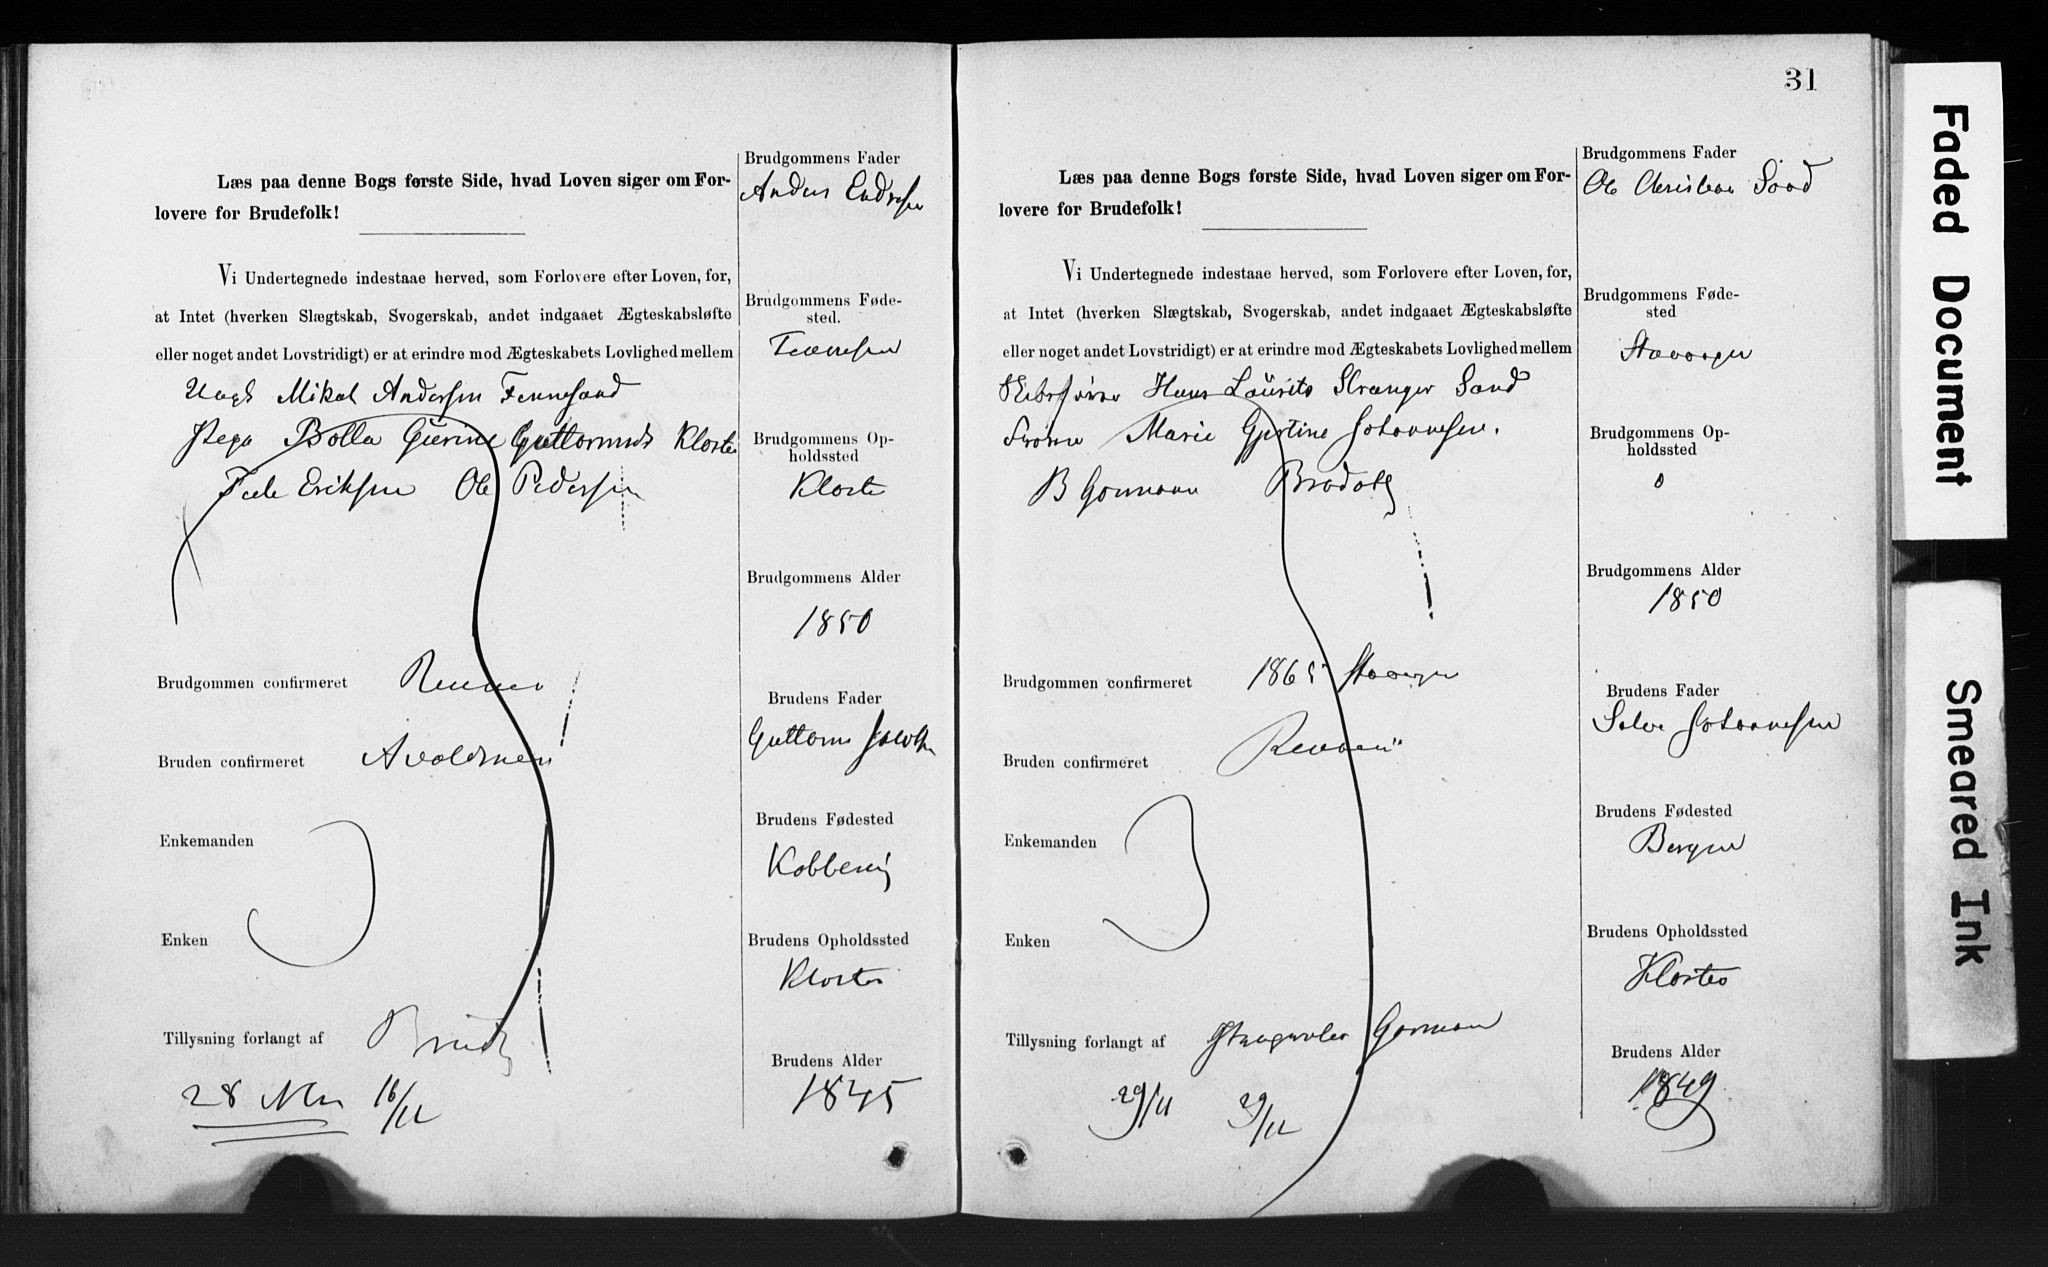 Læs paa denne Bogs første Side, hvad Loven siger om For-
lovere for Brudefolk!
Vi Undertegnede indestaae herved, som Forlovere efter Loven, for,
at Intet (hverken Slægtskab, Svogerskab, andet indgaaet Ægteskabsløfte
eller noget andet Lovstridigt) er at erindre mod Ægteskabets Lovlighed mellem
Ungk Mikal Andersen Fennesand
Pega Bolla Gurine Guttormsdt Kloster
Eriksen Ole Pedersen
Brudgommen confirmeret Rennes
Bruden confirmeret Avaldsnes
Enkemanden
Enken
Tillysning forlangt af Brudg
28 Nbr 16/11
Brudgommens Fader
Anders Endresen
Brudgommens Føde-
sted.
Brudgommens Op-
holdssted
Kloster
Brudgommens Alder
1850
Brudens Fader
Guttorm Jacobsen
Brudens Fødested
Brudens Opholdssted
Kloster
Brudens Alder
1845
31
Læs paa denne Bogs første Side, hvad Loven siger om For-
lovere for Brudefolk!
Vi Undertegnede indestaae herved, som Forlovere efter Loven, for,
at Intet (hverken Slægtskab, Svogerskab, andet indgaaet Ægteskabsløfte
eller noget andet Lovstridigt) er at erindre mod Ægteskabets Lovlighed mellem
Hans Laurits Stranger Sand
Marie Gjertine Johannesen.
B Gormann
Brudgommen confirmeret 1865 Stavanger
Bruden confirmeret
Enkemanden
Enken
Tillysning forlangt af Gormann
29/11 29/11
Brudgommens Fader
Ole Christian Sand
Brudgommens Føde-
sted
Stavanger
Brudgommens Op-
holdssted
Brudgommens Alder
1850
Brudens Fader
Johannesen
Brudens Fødested
Bergen
Brudens Opholdssted
Kloster
Brudens Alder
1849
Faded Document
Smeared Ink